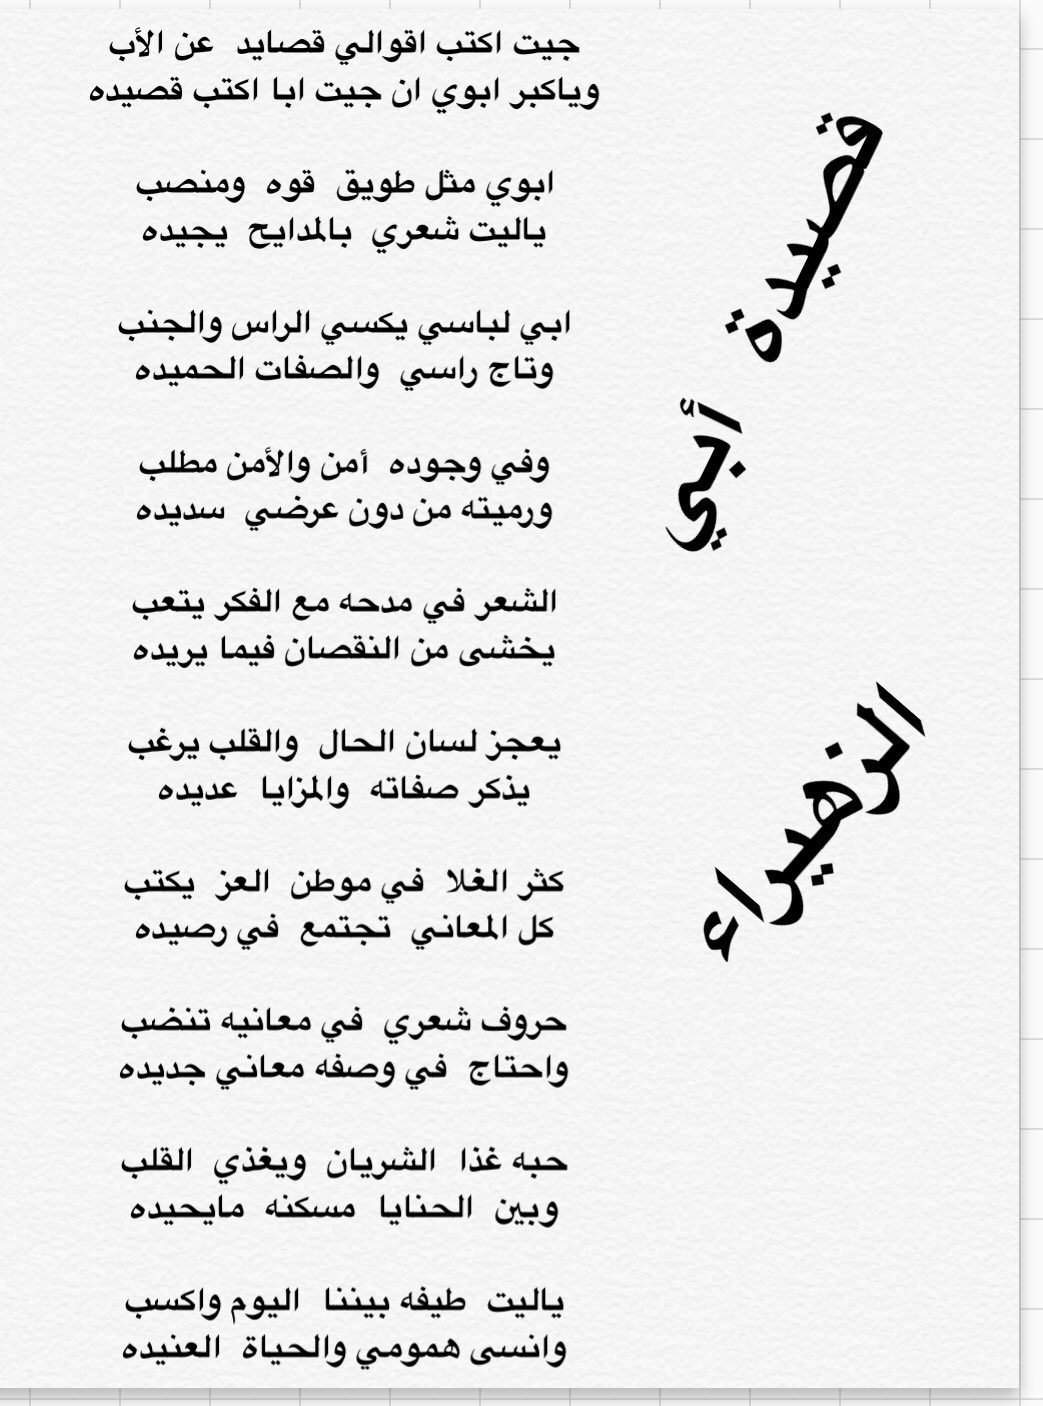 جيت اكتب اقوالي قصايد عن الأب
وياكبر ابوي ان جيت ابا اكتب قصيده
ابوي مثل طويق قوه ومنصب
ياليت شعري بالمدايح يجيده
ابي لباسي يكسي الراس والجنب
وتاج راسي والصفات الحميده
وفي وجوده أمن والأمن مطلب
ورميته من دون عرضي سديده
الشعر في مدحه مع الفكر يتعب
يخشى من النقصان فيما يريده
يعجز لسان الحال والقلب يرغب
يذكر صفاته والمزايا عديده
كثر الغلا في موطن العز يكتب
كل المعاني تجتمع في رصيده
حروف شعري في معانيه تنضب
واحتاج في وصفه معاني جديده
حبه غذا الشريان ويغذي القلب
وبين الحنايا مسكنه مايحيده
ياليت طيفه بيننا اليوم واكسب
وانسى همومي والحياة العنيده
قصيدة
أبي
الزهيراء